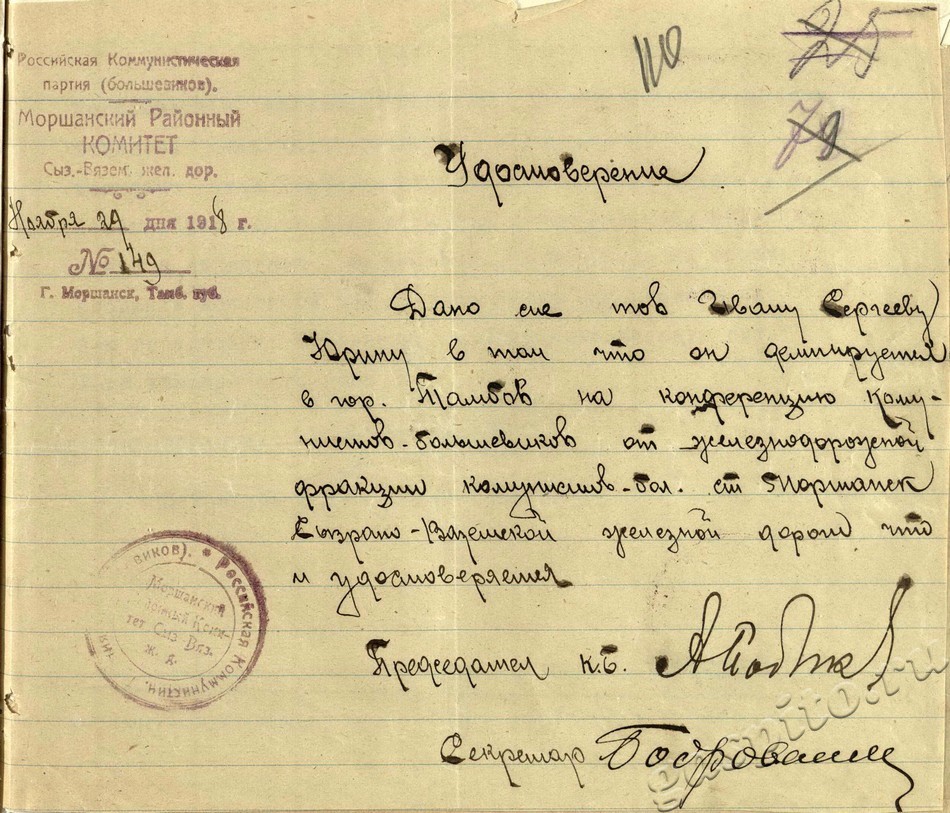 Российская Коммунистическая
партия (большевиков).
Моршанский Районный
КОМИТЕТ
Сыз.-Вязем. жел. дор.
Ноября 29 дня 1918 г.
№ 149
Г. Моршанск, Тамб. губ.
110
75
78
Удостоверение
Дано сие тов Ивану Сергееву
Юрину в том что он делигируется
в гор. Тамбов на конференцию Кому-
нистов-большевиков от железнодорожной
фракции комунистив-бол. ст Моршанск
Сызрано-Вяземской железной дороги что
и удостоверяется
Председател к.б.
Секретар
виков). * Российская Коммунистич.
Моршанский
Районный Коми-
тет Сыз Вяз.
ж. д.
gaspito.ru